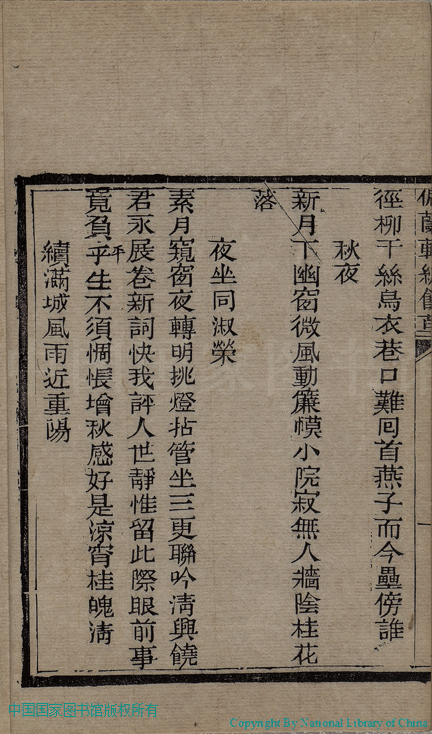 徑柳千絲烏衣巷口難囘首燕子而今壘傍誰
秋夜
新月下幽窗微風動簾幙小院寂無人牆陰桂花
落
夜坐同淑榮
素月窺窗夜轉明挑燈拈管坐三更聯吟清興饒
君永展卷新詞快我評人世靜惟留此際眼前事
竟負乎生不須惆悵增秋感好是涼宵桂魄清
平
續滿城風雨近重陽
中国国家图书馆版权所有
Copyright By National Library of China